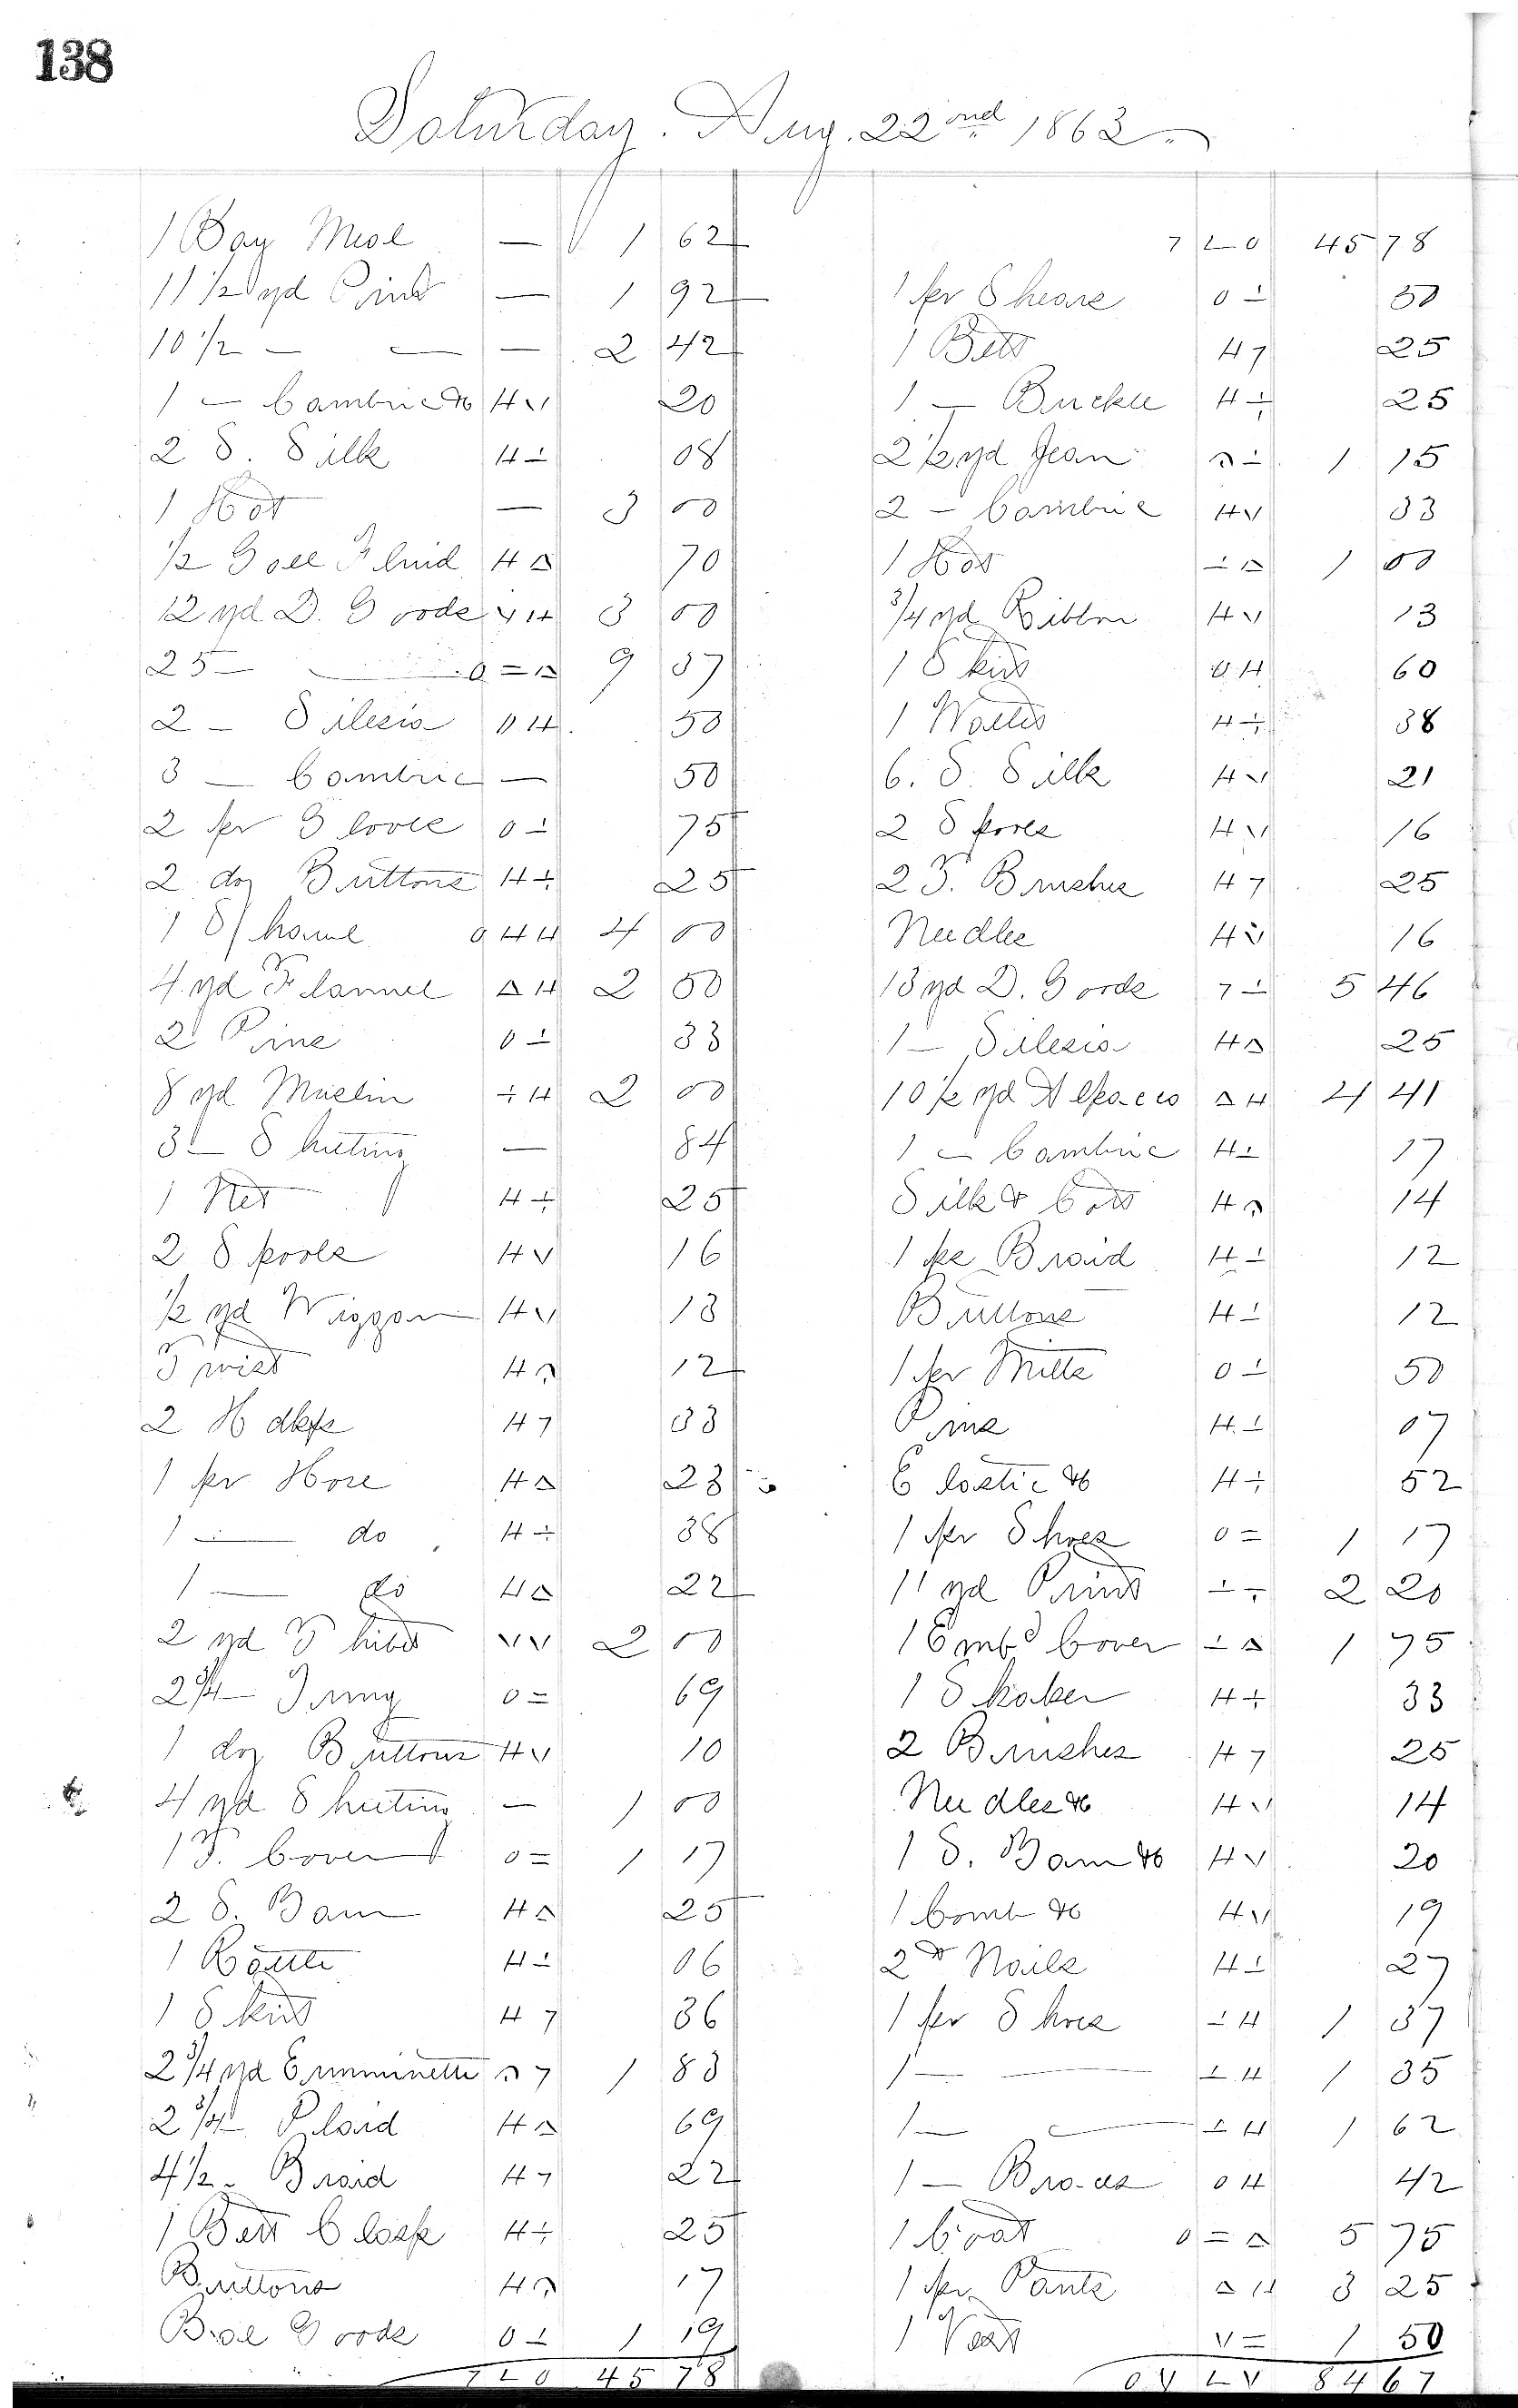 138
Saturday. Aug. 22nd 1863.
1 Bag Meal — 1 62
11 1/2 yd Print — 1 92
10 1/2 — — — 2 42
1 — Cambric &c H V 20
2 S. Silk H ⊥ 08
1 Hat — 3 00
1/2 Gall Fluid H △ 70
12 yd D. Goods V H 3 00
25 — — 0 = △ 9 37
2 — Silesia 0 H 50
3 — Cambric — 50
2 pr Gloves 0 ⊥ 75
2 doz Buttons H ÷ 25
1 Shawl 0 H H 4 00
4 yd Flannel △ H 2 50
2 Pins 0 ⊥ 33
8 yd Muslin ÷ H 2 00
3 — Sheeting — 84
1 Net H ÷ 25
2 Spools H V 16
1/2 yd Wiggan H V 13
Twist H 12
2 Hdkfs H 7 33
1 pr Hose H △ 23
1 — do H ÷ 38
1 — do H △ 22
2 yd Thibet V V 2 00
2 3/4 — 0 = 69
1 doz Buttons H V 10
4 yd Sheeting — 1 00
1 T. Cover 0 = 1 17
2 S. Bam H △ 25
1 Rattle H ⊥ 06
1 Skirt H 7 36
2 3/4 yd Erminette 7 1 83
2 3/4 — Plaid H △ 69
4 1/2 — Braid H 7 22
1 Belt Clasp H ÷ 25
Buttons H 17
Bal Goods 0 ⊥ 1 19
7 L 0 45 78
7 L 0 45 78
1 pr Shears 0 ⊥ 50
1 Belt H 7 25
1 — Buckle H ÷ 25
2 1/2 yd Jean ⊥ 1 15
2 — Cambric H V 33
1 Hat ⊥ △ 1 00
3/4 yd Ribbon H V 13
1 Skirt 0 H 60
1 Wallet H ÷ 38
6. S. Silk H V 21
2 Spools H V 16
2 T. Brushes H 7 25
Needles H V 16
13 yd D. Goods 7 ⊥ 5 46
1 — Silesia H △ 25
10 1/2 yd Alpacca △ H 4 41
1 — Cambric H ⊥ 17
Silk & Cord H 14
1 pc Braid H ⊥ 12
Buttons H ⊥ 12
1 pr Mitts 0 ⊥ 50
Pins H ⊥ 07
Elastic &c H ÷ 52
1 pr Shoes 0 = 1 17
11 yd Print ⊥ 7 2 20
1 Embd Cover ⊥ △ 1 75
1 Shaker H ÷ 33
2 Brushes H 7 25
Needles &c H V 14
1 S. Bam &c H V 20
1 Comb &c H V 19
2 # Nails H ⊥ 27
1 pr Shoes ⊥ H 1 37
1 — — ⊥ H 1 35
1 — — ⊥ H 1 62
1 — Bro-as 0 H 42
1 Coat 0 = △ 5 75
1 pr Pants △ H 3 25
1 Vest V = 1 50
0 V L V 84 67